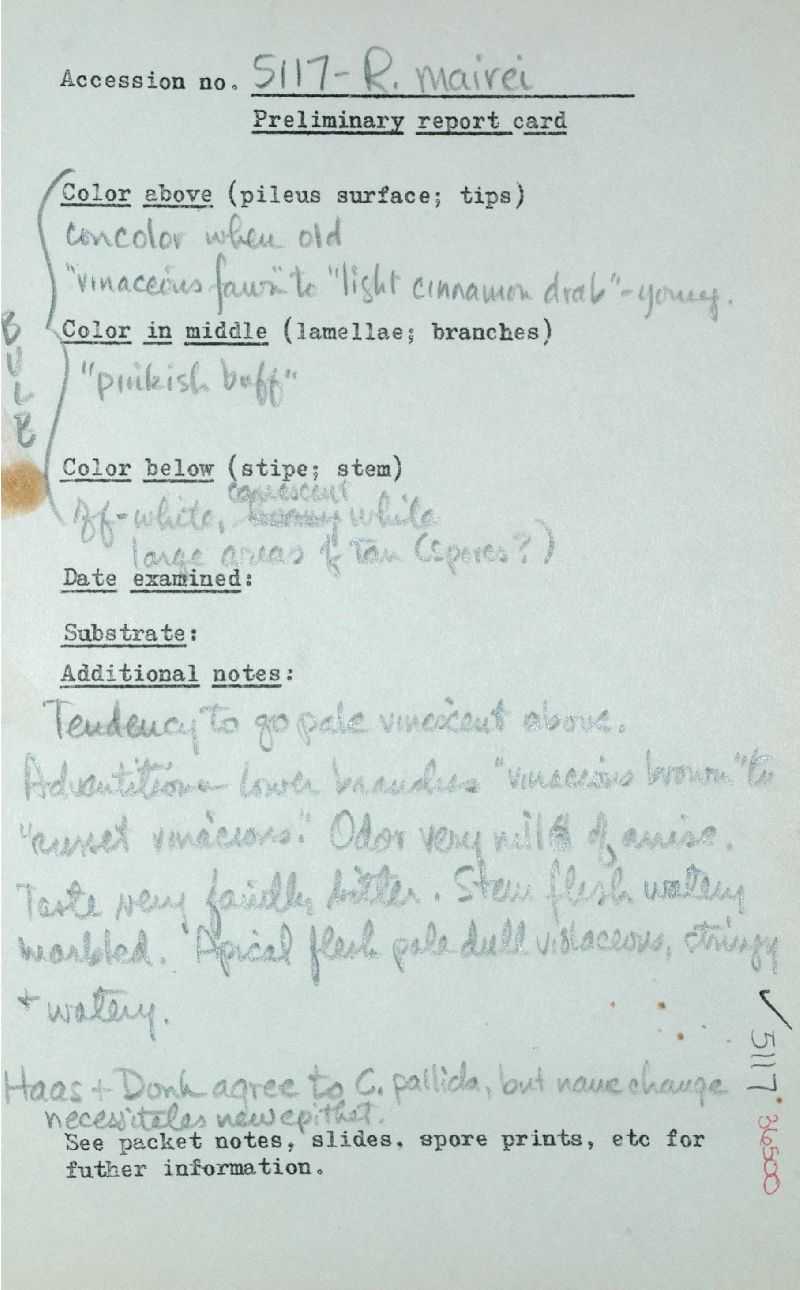 Accession no. 5117- R. mairei
Preliminary report card
Color above (pileus surface; tips)
concolor when old
"vinaceous fawn" to "light cinnamon drab"-young.
Color in middle (lamellae; branches)
BULB
"pinkish buff"
Color below (stipe; stem)
canescent
Off-white, white
large areas of tan (spores?)
Date examined:
Substrate:
Additional notes:
Tendency to go pale vinescent above.
Adventitious lower branches "vinaceous brown" to
"russet vinaceous." Odor very mild of anise.
Taste very faintly bitter. Stem flesh watery
marbled. Apical flesh pale dull violaceous, stringy
+ watery.
✓ 5117
36500
Haas + Donk agree to C. pallida, but name change
necessitates new epithet.
See packet notes, slides, spore prints, etc for
futher information.